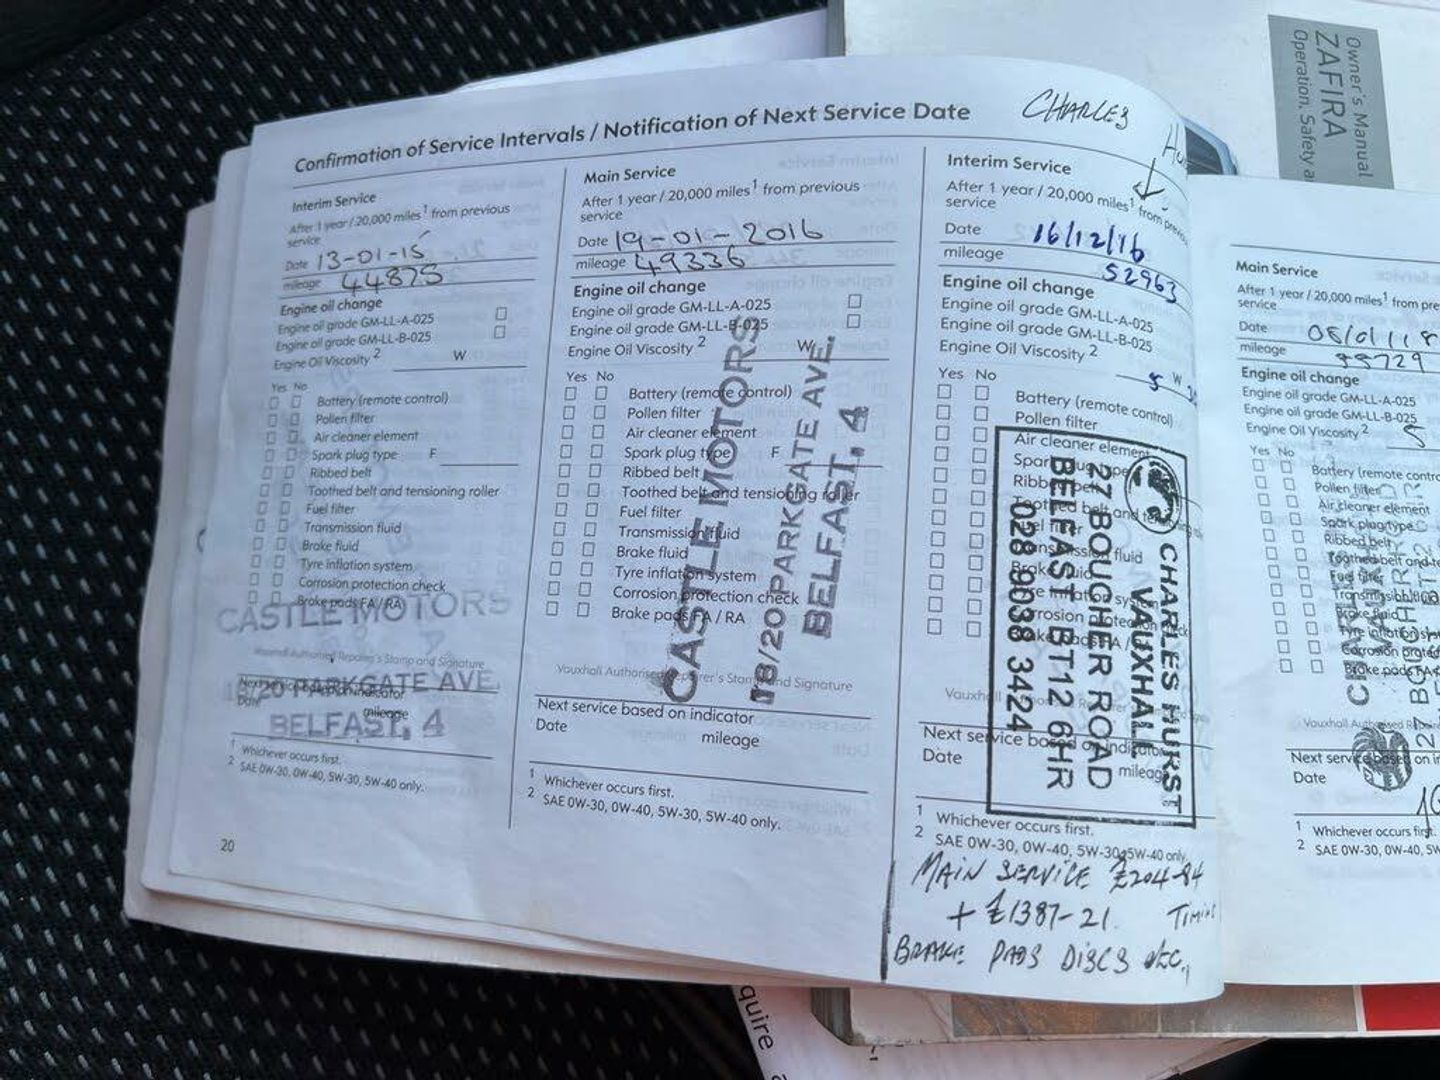 Owner's Manual
ZAFIRA
Operation, Safety a
Confirmation of Service Intervals / Notification of Next Service Date
CHARLES
Interim Service
After 1 year / 20,000 miles¹ from previous
service
Date 13-01-15
mileage 44875
Engine oil change
Engine oil grade GM-LL-A-025
Engine oil grade GM-LL-B-025
Engine Oil Viscosity ² W
Yes No
Battery (remote control)
Pollen filter
Air cleaner element
Spark plug type F
Ribbed belt
Toothed belt and tensioning roller
Fuel filter
Transmission fluid
Brake fluid
Tyre inflation system
Corrosion protection check
Brake pads FA / RA
CASTLE MOTORS
Vauxhall Authorised Repairer's Stamp and Signature
18/20 PARKGATE AVE.
Date mileage
BELFAST, 4
¹ Whichever occurs first.
² SAE 0W-30, 0W-40, 5W-30, 5W-40 only.
20
Main Service
After 1 year / 20,000 miles¹ from previous
service
Date 19-01-2016
mileage 49336
Engine oil change
Engine oil grade GM-LL-A-025
Engine oil grade GM-LL-B-025
Engine Oil Viscosity ² W
Yes No
Battery (remote control)
Pollen filter
Air cleaner element
Spark plug type F
Ribbed belt
Toothed belt and tensioning roller
Fuel filter
Transmission fluid
Brake fluid
Tyre inflation system
Corrosion protection check
Brake pads FA / RA
CASTLE MOTORS
18/20 PARKGATE AVE.
BELFAST, 4
Vauxhall Authorised Repairer's Stamp and Signature
Next service based on indicator
Date mileage
¹ Whichever occurs first.
² SAE 0W-30, 0W-40, 5W-30, 5W-40 only.
Interim Service
After 1 year / 20,000 miles¹ from previous
service
Date 16/12/16
mileage 52963
Engine oil change
Engine oil grade GM-LL-A-025
Engine oil grade GM-LL-B-025
Engine Oil Viscosity ²
5 W
Yes No
Battery (remote control)
Pollen filter
Air cleaner element
CHARLES HURST
VAUXHALL
27 BOUCHER ROAD
BELFAST BT12 6HR
028 9038 3424
Next service based on indicator
Date mileage
¹ Whichever occurs first.
² SAE 0W-30, 0W-40, 5W-30, 5W-40 only.
MAIN SERVICE £204-84
+ £1387-21.
BRAKE PADS DISCS etc.,
Main Service
After 1 year / 20,000 miles¹ from pre
service
Date 08/01/18
mileage 55729
Engine oil change
Engine oil grade GM-LL-A-025
Engine oil grade GM-LL-B-025
Engine Oil Viscosity ² 5
Yes No
Battery (remote contro
Pollen filter
Air cleaner element
Spark plug type
Ribbed belt
Toothed belt and te
Fuel filter
Brake fluid
Vauxhall Authorised
Next service based on in
Date
¹ Whichever occurs first.
² SAE 0W-30, 0W-40, 5W
quire